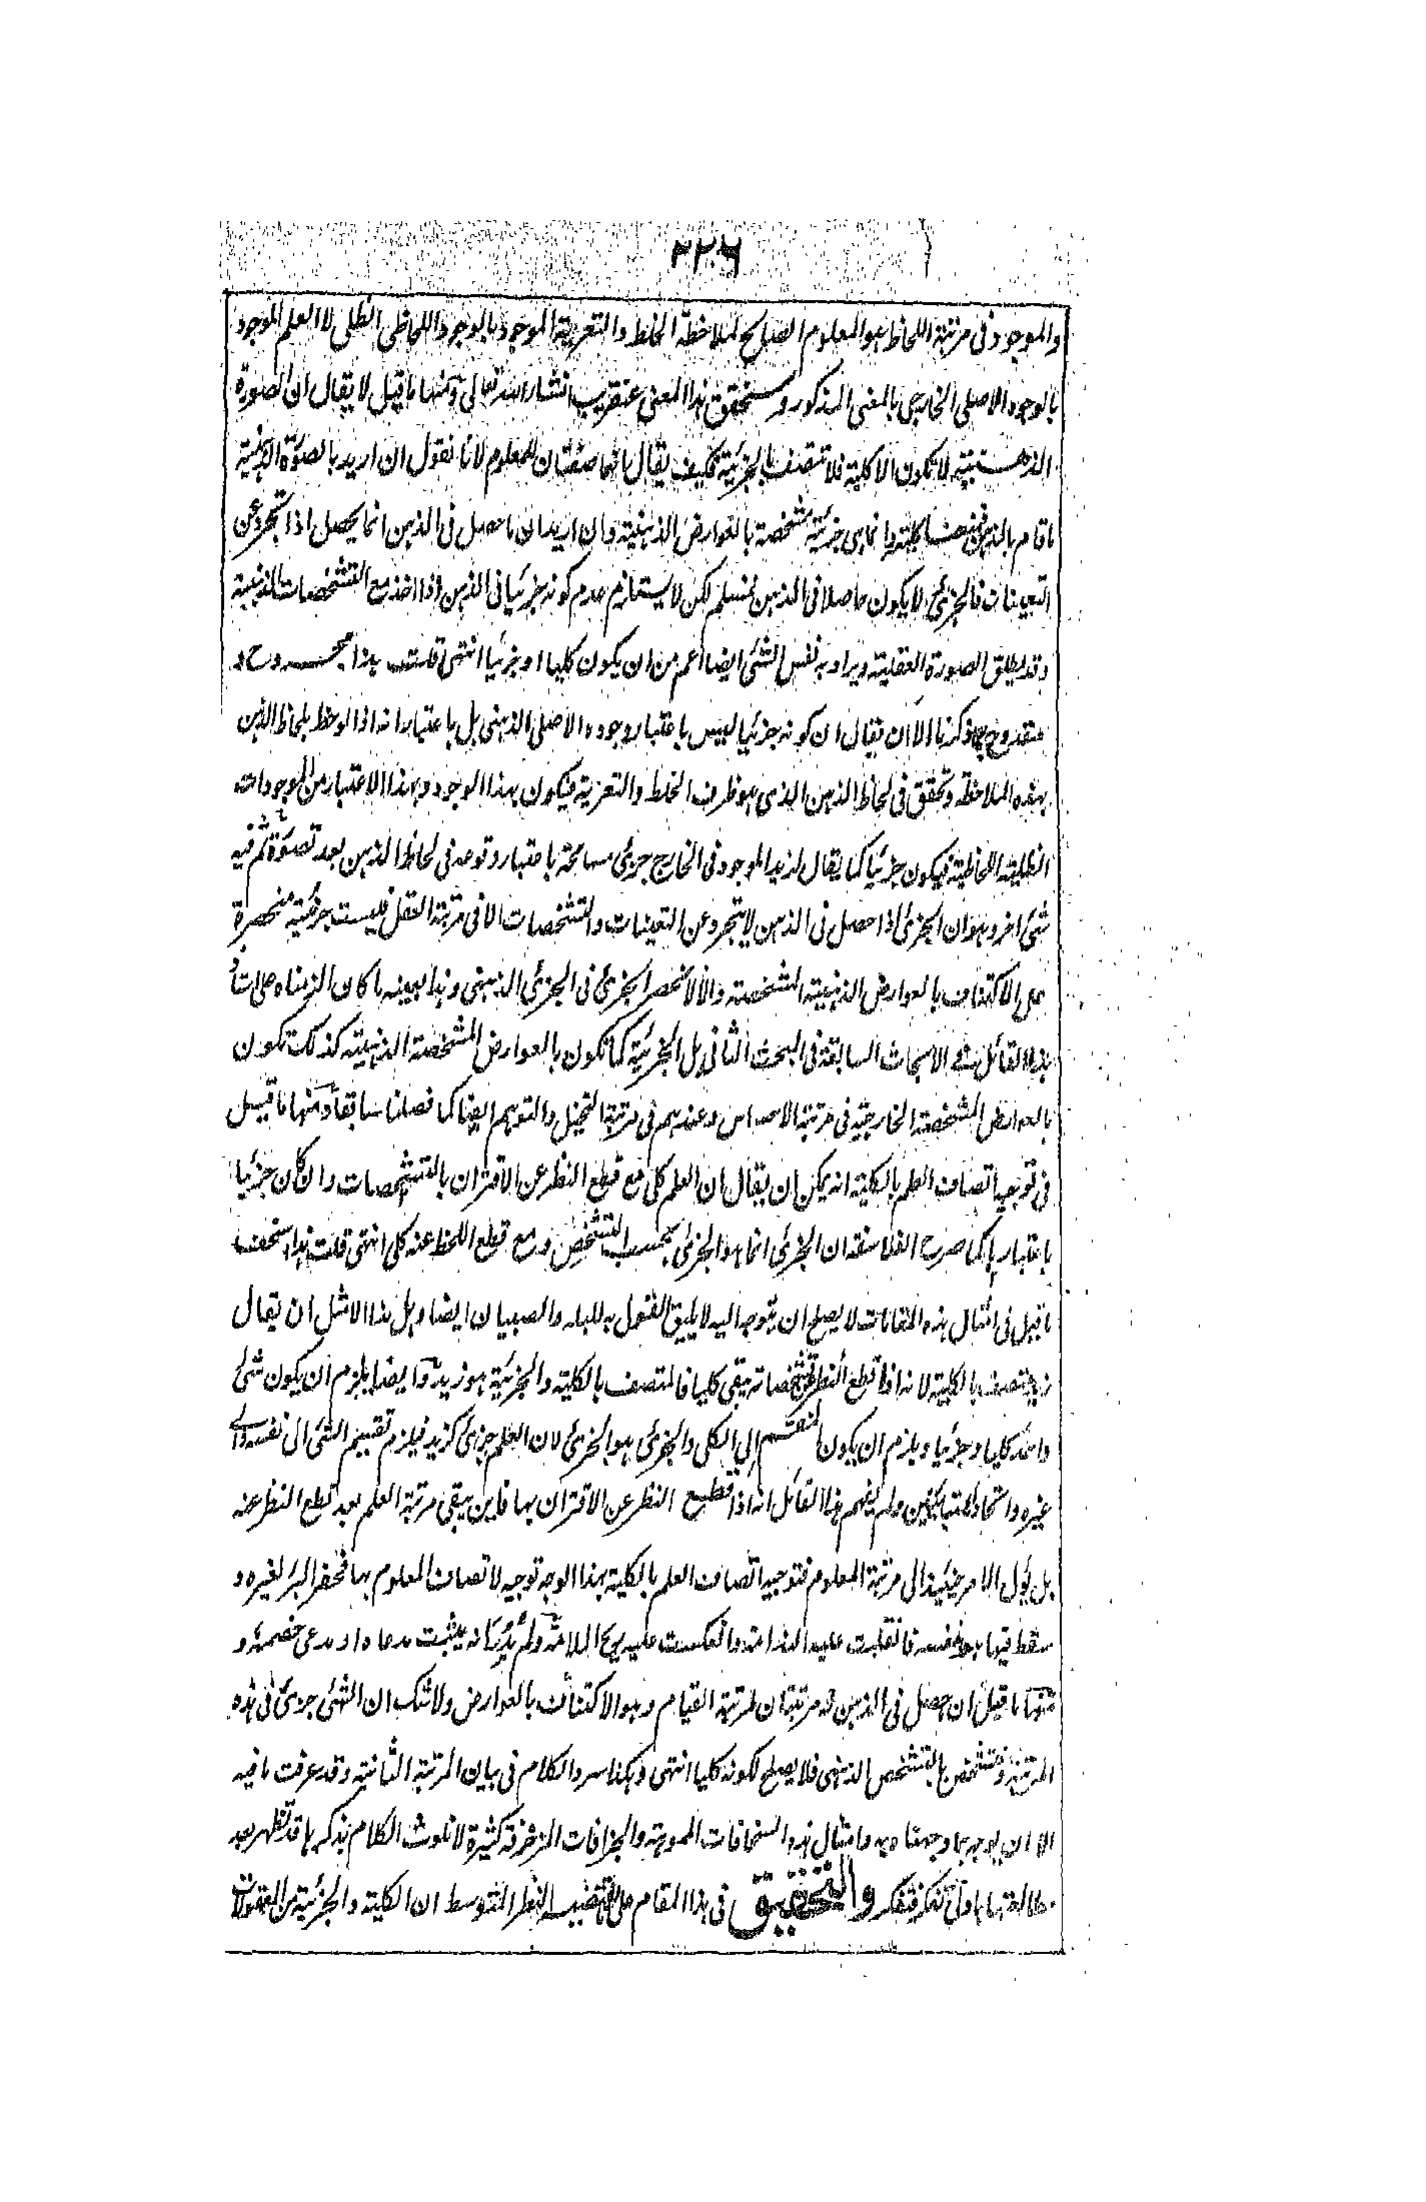 ٢٢٦
والموجود فى مرتبة اللحاظ هو المعلوم الصالح لملاحظة الخلط والتعرية الموجود بالوجود اللحاظى الظلى لا العلم الموجود
بالوجود الاصلى الخارجى بالمعنى المذكور وستحقق هذا المعنى عنقريب انشاء الله تعالى ومنها ما قيل لا يقال ان الصورة
الذهنية لا تكون الا كلية فلا تتصف بالجزئية فكيف يقال بانهما صفتان للمعلوم لانا نقول ان اريد بالصورة الذهنية
ما قام بالذهن كليتها انما هى جزئية مشخصة بالعوارض الذهنية وان اريد ان ما حصل فى الذهن انما يحصل اذا تجرد عن
التعينات فالجزئى لا يكون حاصلا فى الذهن فمسلم لكن لا يستلزم عدم كونه جزئيا فى الذهن اذا اخذ مع التشخصات الذهنية
وقد يطلق الصورة العقلية ويراد به نفس الشئ ايضا اعم من ان يكون كليا او جزئيا انتهى قلت هذا مجروح و
مقدوح بما ذكرنا الا ان يقال ان كونه جزئيا ليس باعتبار وجوده الاصلى الذهنى بل باعتبار انه اذا لوحظ بلحاظ الذهن
بهذه الملاحظة وتحقق فى لحاظ الذهن الذى هو ظرف الخلط والتعرية فيكون بهذا الوجود وبهذا الاعتبار من الموجودات
الظلية اللحاظية فيكون جزئيا كما يقال لزيد الموجود فى الخارج جزئى مسامحة باعتبار وقوعه فى لحاظ الذهن بعد تصوره ثم فيه
شئ اخر وهو ان الجزئى اذا حصل فى الذهن لا يتجرد عن التعينات والتشخصات الا فى مرتبة العقل فليست جزئيته منحصرة
على الاكتناف بالعوارض الذهنية المشخصة والا لانحصر الجزئى فى الجزئى الذهنى وهذا بعينه ما كان الزمناه على
هذا القائل فى الابحاث السابقة فى البحث الثانى بل الجزئية كما تكون بالعوارض المشخصة الذهنية كذلك تكون
بالعوارض المشخصة الخارجية فى مرتبة الاحساس وعندهم فى مرتبة التخيل والتوهم ايضا كما فصلنا سابقا ومنها ما قيل
فى توجيه اتصاف العلم بالكلية انه يمكن ان يقال ان العلم كلى مع قطع النظر عن الاقتران بالتشخصات وان كان جزئيا
باعتبارها كما صرح الفلاسفة ان الجزئى انما هو الجزئى بحسب التشخص ومع قطع اللحظ عنه كلى انتهى قلت هذا اسخف
ما قيل فى امثال هذه المقامات لا يصلح ان يتوجه اليه لا يليق القول به للبله والصبيان ايضا وهل هذا الا مثل ان يقال
زيد يتصف بالكلية لانه اذا قطع النظر عن تشخصاته يبقى كليا فالمتصف بالكلية والجزئية هو زيد وايضا يلزم ان يكون شئ
واحد كليا وجزئيا ويلزم ان يكون المنقسم الى الكلى والجزئى هو الجزئى لان العلم جزئى كزيد فيلزم تقسيم الشئ الى نفسه والى
غيره واتحاد المتباينين ولم يفهم هذا القائل انه اذا قطع النظر عن الاقتران بها فاين يبقى مرتبة العلم بعد قطع النظر عنه
بل يؤل الامر حينئذ الى مرتبة المعلوم فتوجيه اتصاف العلم بالكلية بهذا الوجه توجيه لاتصاف المعلوم بها فحفر البئر لغيره و
سقط فيها هو نفسه فانقلبت عليه الندامة وانعكست عليه ريح الملامة ولم يدر انه يثبت مدعاه او مدعى خصمه و
منها ما قيل ان ما حصل فى الذهن له مرتبتان مرتبة القيام وهو الاكتناف بالعوارض ولا شك ان الشئ جزئى فى هذه
المرتبة ومتشخص بالتشخص الذهنى فلا يصلح لكونه كليا انتهى وهكذا سرد الكلام فى بيان المرتبة الثانية وقد عرفت ما فيه
الا ان يوجه بما وجهناه به وامثال هذه السخافات المموهة والجزافات المزخرفة كثيرة لا نلوث الكلام بذكرها قد تظهر بعد
مطالعتها بادنى تفكر فتفكر والتحقيق فى هذا المقام على ما يقتضيه النظر المتوسط ان الكلية والجزئية من المعقولات